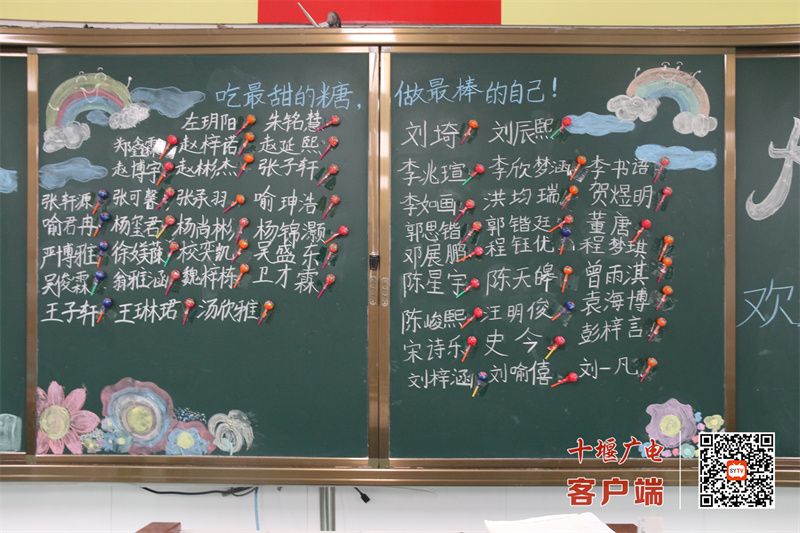 吃最甜的糖，
左玥阳 朱铭慧
郑鑫霖 赵梓诺 赵延熙
赵博宇 赵彬杰 张子轩
张轩源 张可馨 张承羽 喻珅浩
喻君冉 杨玺君 杨尚彬 杨锦灏
严博雅 徐媄薇 校奕凯 吴盛东
吴俊霖 翁雅涵 魏梓栋 卫才霖
王子轩 王琳珺 汤欣雅
做最棒的自己！
刘埼 刘辰熙
李兆瑄 李欣梦涵 李书语
李如画 洪均瑞 贺煜明
郭思锴 郭锴廷 董唐
邓展鹏 程钰优 程梦琪
陈星宇 陈天皞 曾雨淇
陈峻熙 汪明俊 袁海博
宋诗乐 史今 彭梓言
刘梓涵 刘喻僖 刘一凡
欢
十堰广电
客户端
SYTV